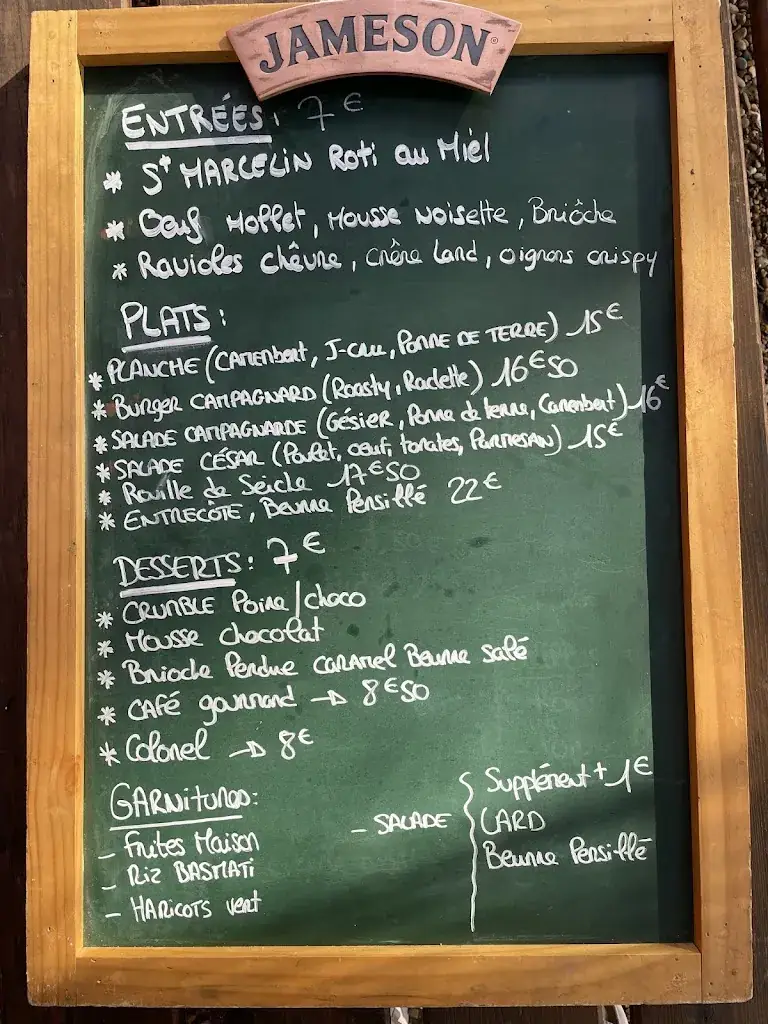 JAMESON
ENTRÉES: 7€
* St MARCELIN Roti au Miel
* Oeuf Mollet, Mousse Noisette, Briôche
* Ravioles chêvre, Crème Lard, oignons crispy
PLATS:
* PLANCHE (CAMEMbert, J-CRU, POMME DE TERRE) 15€
* Burger CAMPAGNARD (Roasty, Raclette) 16€50
* SALADE CAMPAGNARDE (Gésier, Pomme de terre, Camembert) 16€
* SALADE CÉSAR (Poulet, oeuf, tomates, PARMESAN) 15€
* Rouille de Seiche 17€50
* ENTRECOTE, Beurre Persillé 22€
DESSERTS: 7€
* CRUMBLE Poire/choco
* Mousse chocolat
* Brioche Perdue CARAMEL Beurre salé
* CAFÉ gourmand → 8€50
* Colonel → 8€
GARNitures:
- Frites Maison
- Riz BASMATI
- HARICOTS vert
- SALADE
Supplément + 1€
LARD
Beurre Persillé